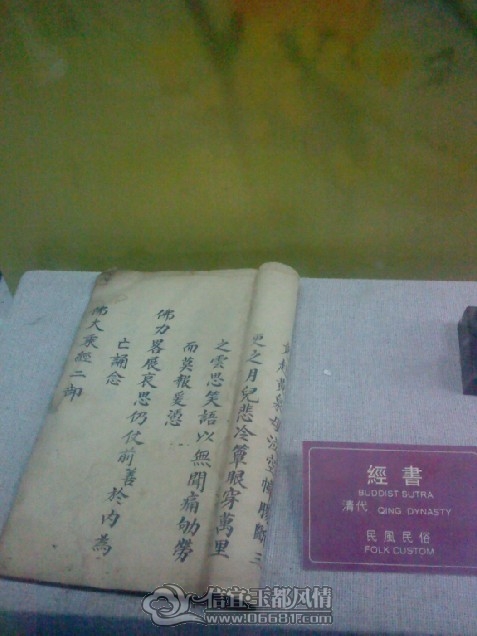 更之月兒悲冷簟眼穿萬里
之雲思笑語以無聞痛劬勞
而莫報爰憑
佛力畧展哀思仍仗前善於内為
亡誦念
佛大乘經二部
經書
BUDDIST SUTRA
清代 QING DYNASTY
民風民俗
FOLK CUSTOM
信宜·玉都风情
www.06681.com